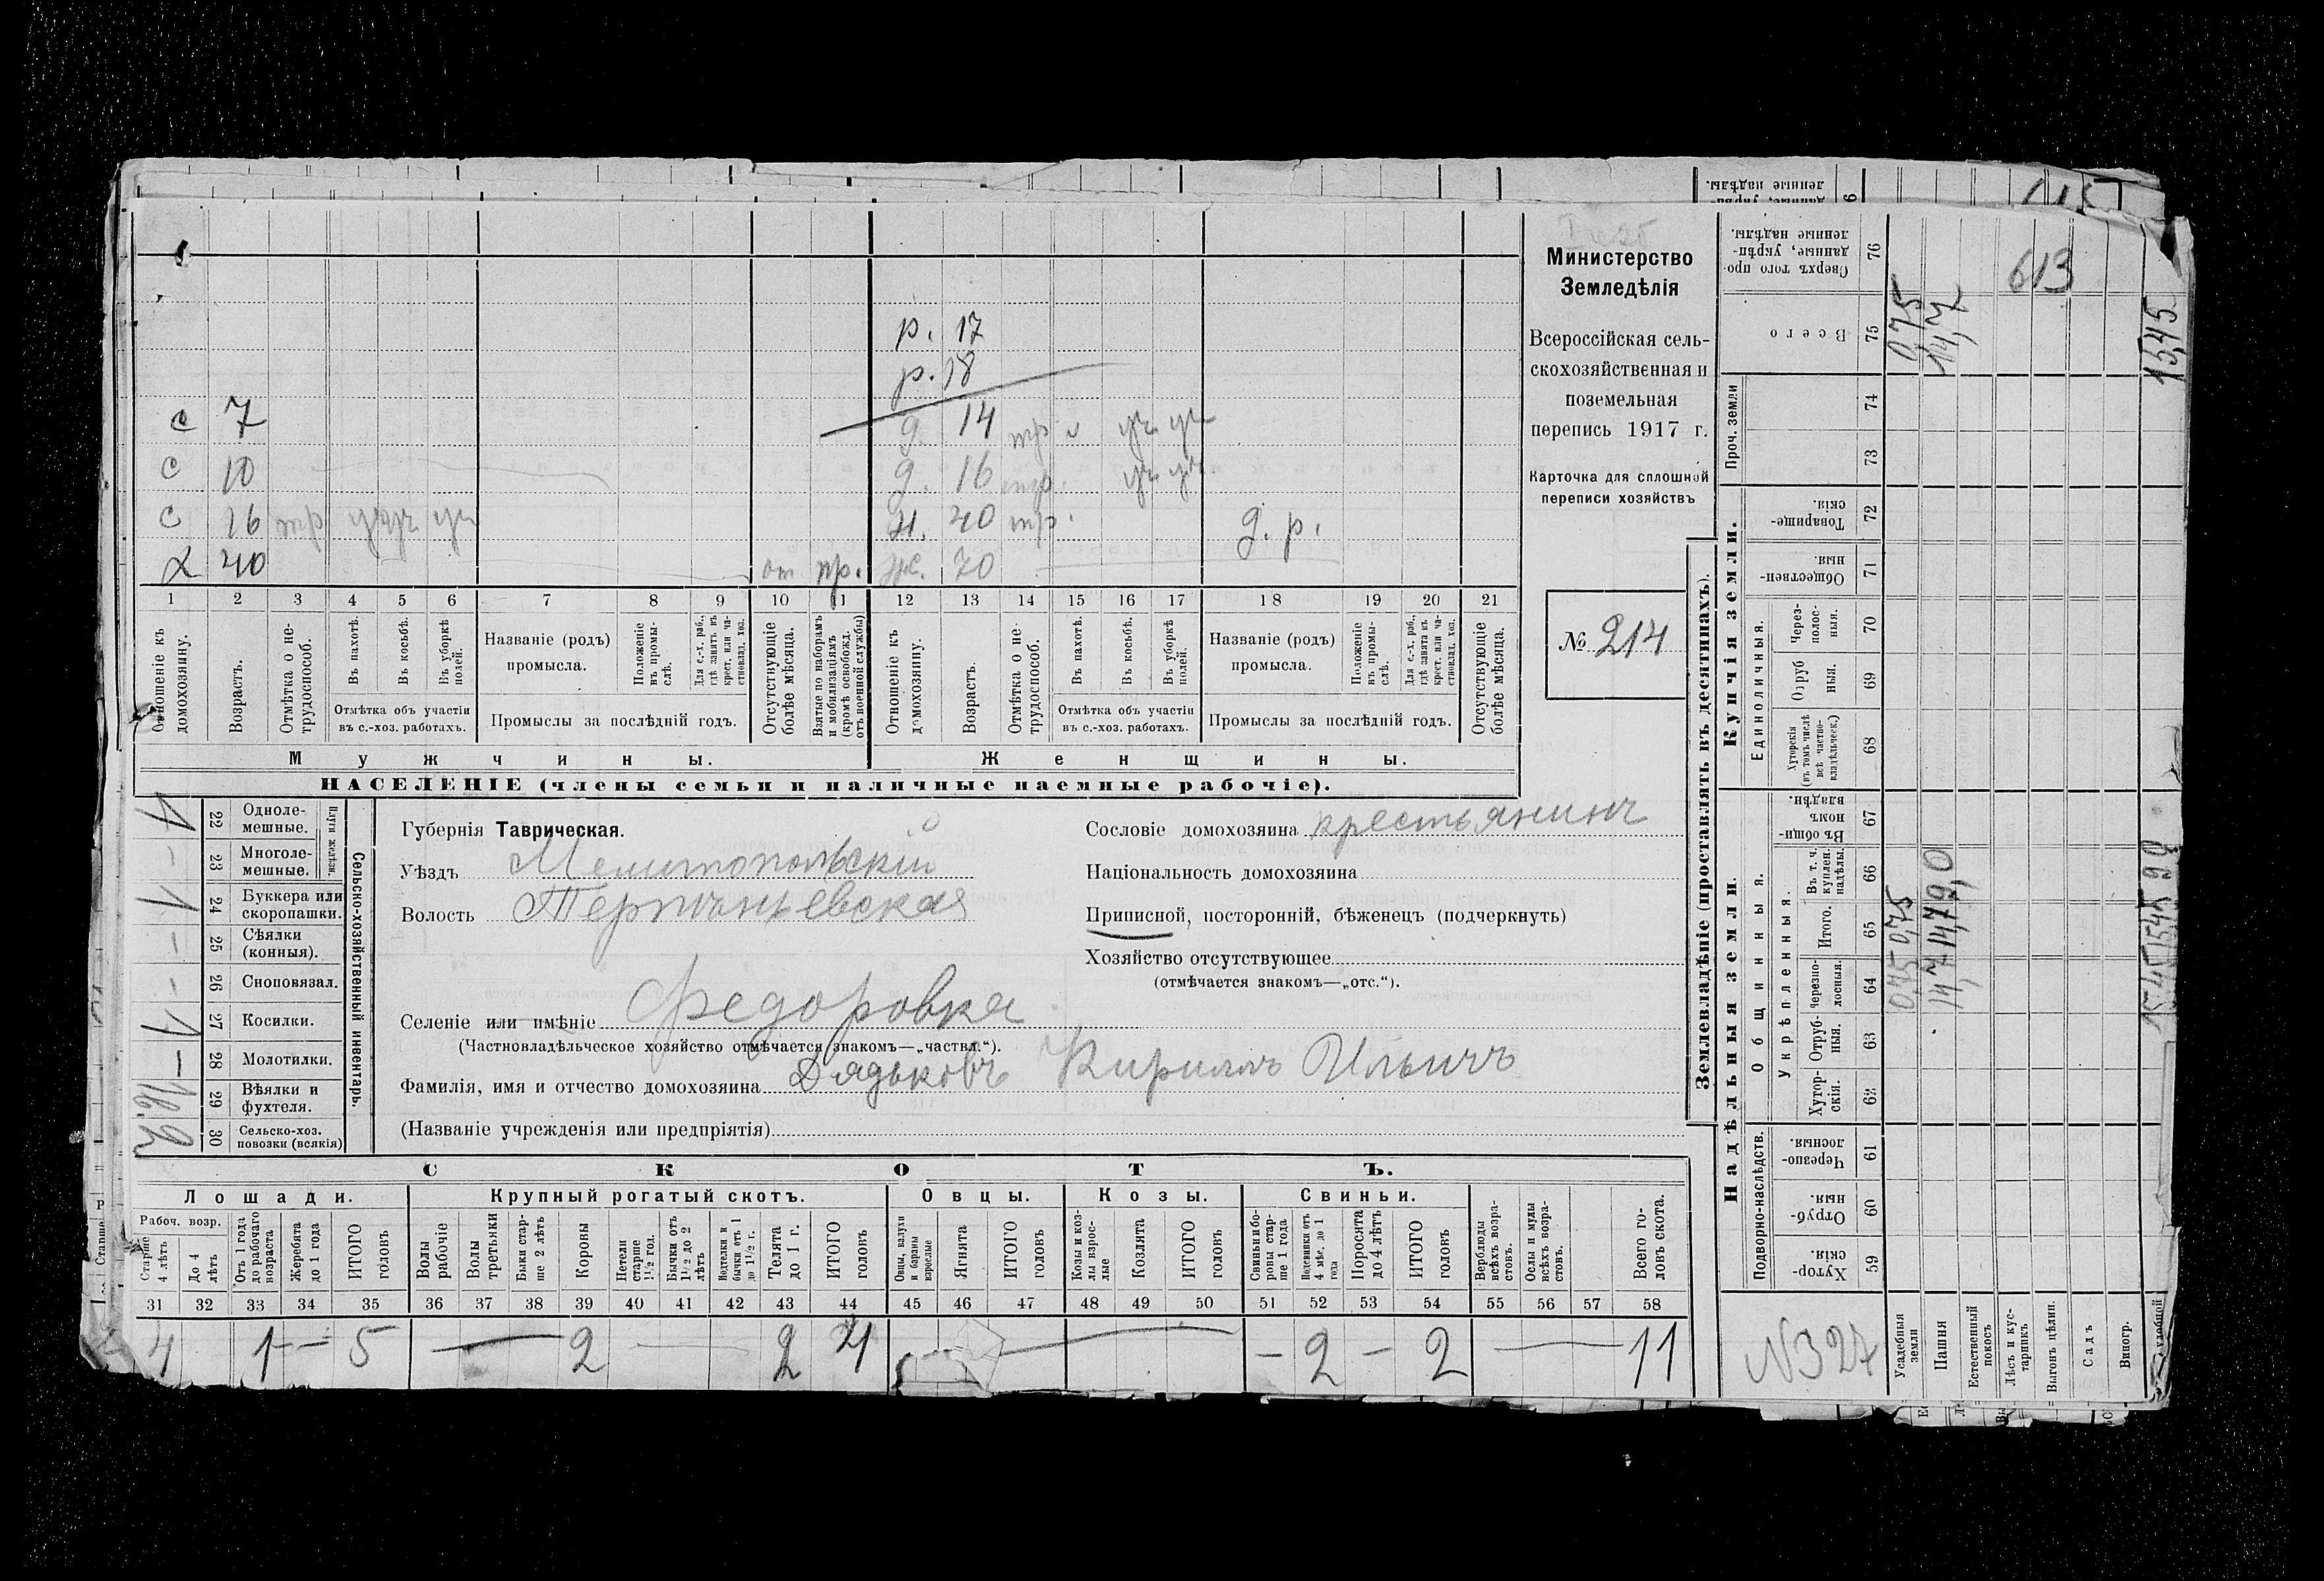 Министерство
Земледѣлія
Всероссійская сель-
скохозяйственная и
поземельная
перепись 1917 г.
Карточка для сплошной
переписи хозяйствъ
№ 214
р. 17
р. 18
с 7 д. 14
с 10 д. 16 пр.
с 16 пр. 40 пр. д. р.
40 от. пр. 70
1 2 3 4 5 6 7 8 9 10 11 12 13 14 15 16 17 18 19 20 21
Отношеніе къ домохозяину.
Возрастъ.
Отмѣтка о не-трудоспособ.
Въ пахотѣ.
Въ косьбѣ.
Въ уборкѣ полей.
Отмѣтка объ участіи въ с.-хоз. работахъ.
Названіе (родъ) промысла.
Положеніе въ промы-слѣ.
Для с.-х. раб., гдѣ занятъ въ крест. или ча-стновлад. хоз.
Промыслы за послѣдній годъ.
Отсутствующіе болѣе мѣсяца.
Взятые по наборамъ и мобилизаціямъ (кромѣ освобожд. отъ военной службы)
Отношеніе къ домохозяину.
Возрастъ.
Отмѣтка о не трудоспособ.
Въ пахотѣ.
Въ косьбѣ.
Въ уборкѣ полей.
Отмѣтка объ участіи въ с.-хоз. работахъ.
Названіе (родъ) промысла.
Положеніе въ промы-слѣ.
Для с.-х. раб., гдѣ занятъ въ крест. или ча-стновлад. хоз.
Промыслы за послѣдній годъ.
Отсутствующіе болѣе мѣсяца.
Мужчины. Женщины.
НАСЕЛЕНІЕ (члены семьи и наличные наемные рабочіе).
Сельско-хозяйственный инвентарь.
Плуги желѣзн.
1 22 Одноле-мешные.
– 23 Многоле-мешные.
1 24 Буккера или скоропашки.
– 25 Сѣялки (конныя).
– 26 Сноповязал.
1 27 Косилки.
– 28 Молотилки.
29 Вѣялки и фухтеля.
2 30 Сельско-хоз. повозки (всякія)
Губернія Таврическая.
Уѣздъ Мелитопольскій
Волость
Сословіе домохозяина крестьянинъ
Національность домохозяина
Приписной, посторонній, бѣженецъ (подчеркнуть)
Хозяйство отсутствующее
(отмѣчается знакомъ—„отс.“).
Селеніе или имѣніе Федоровка
(Частновладѣльческое хозяйство отмѣчается знакомъ—„частвл.“).
Фамилія, имя и отчество домохозяина Дядьковъ Кириллъ Ильичъ
(Названіе учрежденія или предпріятія)
СКОТЪ.
Лошади. Крупный рогатый скотъ. Овцы. Козы. Свиньи.
Рабоч. возр.
Старше 4 лѣтъ
До 4 лѣтъ
Отъ 1 года до рабочаго возраста
Жеребята до 1 года
ИТОГО головъ
Волы рабочіе
Волы третьяки
Быки стар-ше 2 лѣтъ
Коровы
Нетели старше 1 1/2 год.
Бычки отъ 1 1/2 до 2 лѣтъ
Подтелки и бычки отъ 1 до 1 1/2 г.
Телята до 1 г.
ИТОГО головъ
Овцы, валухи и бараны взрослые
Ягнята
ИТОГО головъ
Козы и коз-лы взрос-лые
Козлята
ИТОГО головъ
Свиньи и бо-ровы стар-ше 1 года
Подсвинки отъ 4 мѣс. до 1 года
Поросята до 4 лѣтъ
ИТОГО головъ
Верблюды всѣхъ возра-стовъ.
Ослы и мулы всѣхъ возра-стовъ.
Всего го-ловъ скота.
31 32 33 34 35 36 37 38 39 40 41 42 43 44 45 46 47 48 49 50 51 52 53 54 55 56 57 58
4 1 – 5 — 2 — 2 4 — – 2 – 2 — 11
Землевладѣніе (проставлять въ десятинахъ).
Купчія земли.
Надѣльныя земли.
Сверхъ того про-данные, укрѣп-ленные надѣлы. 76
Всего 75
Проч. земли 74 73
Товарище-скія. 72
Обществен-ныя. 71
Единоличныя.
Через-полос-ныя. 70
Отруб ныя. 69
Хуторскія (въ томъ числѣ всѣ частно-владѣльческ.) 68
Общинныя.
Въ общи-номъ владѣн. 67
Укрѣпленныя.
Въ т. ч. куплен. надѣлы. 66
Итого. 65
Черезпо-лосныя. 64
Отруб-ныя. 63
Хутор-скія. 62
Подворно-наслѣдств.
Черезпо-лосныя. 61
Отруб-ныя. 60
Хутор-скія. 59
Усадебныя земли
Пашня
Естественный покосъ
Лѣсъ и кус-тарникъ
Выгонъ цѣлин.
Садъ
Виногр.
613
0,75
14,7
15,45
0,75 0,75
14,7 14,7 9,0
15,45 15,45
N 327